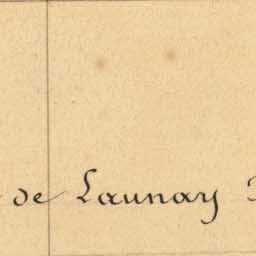 de Launay